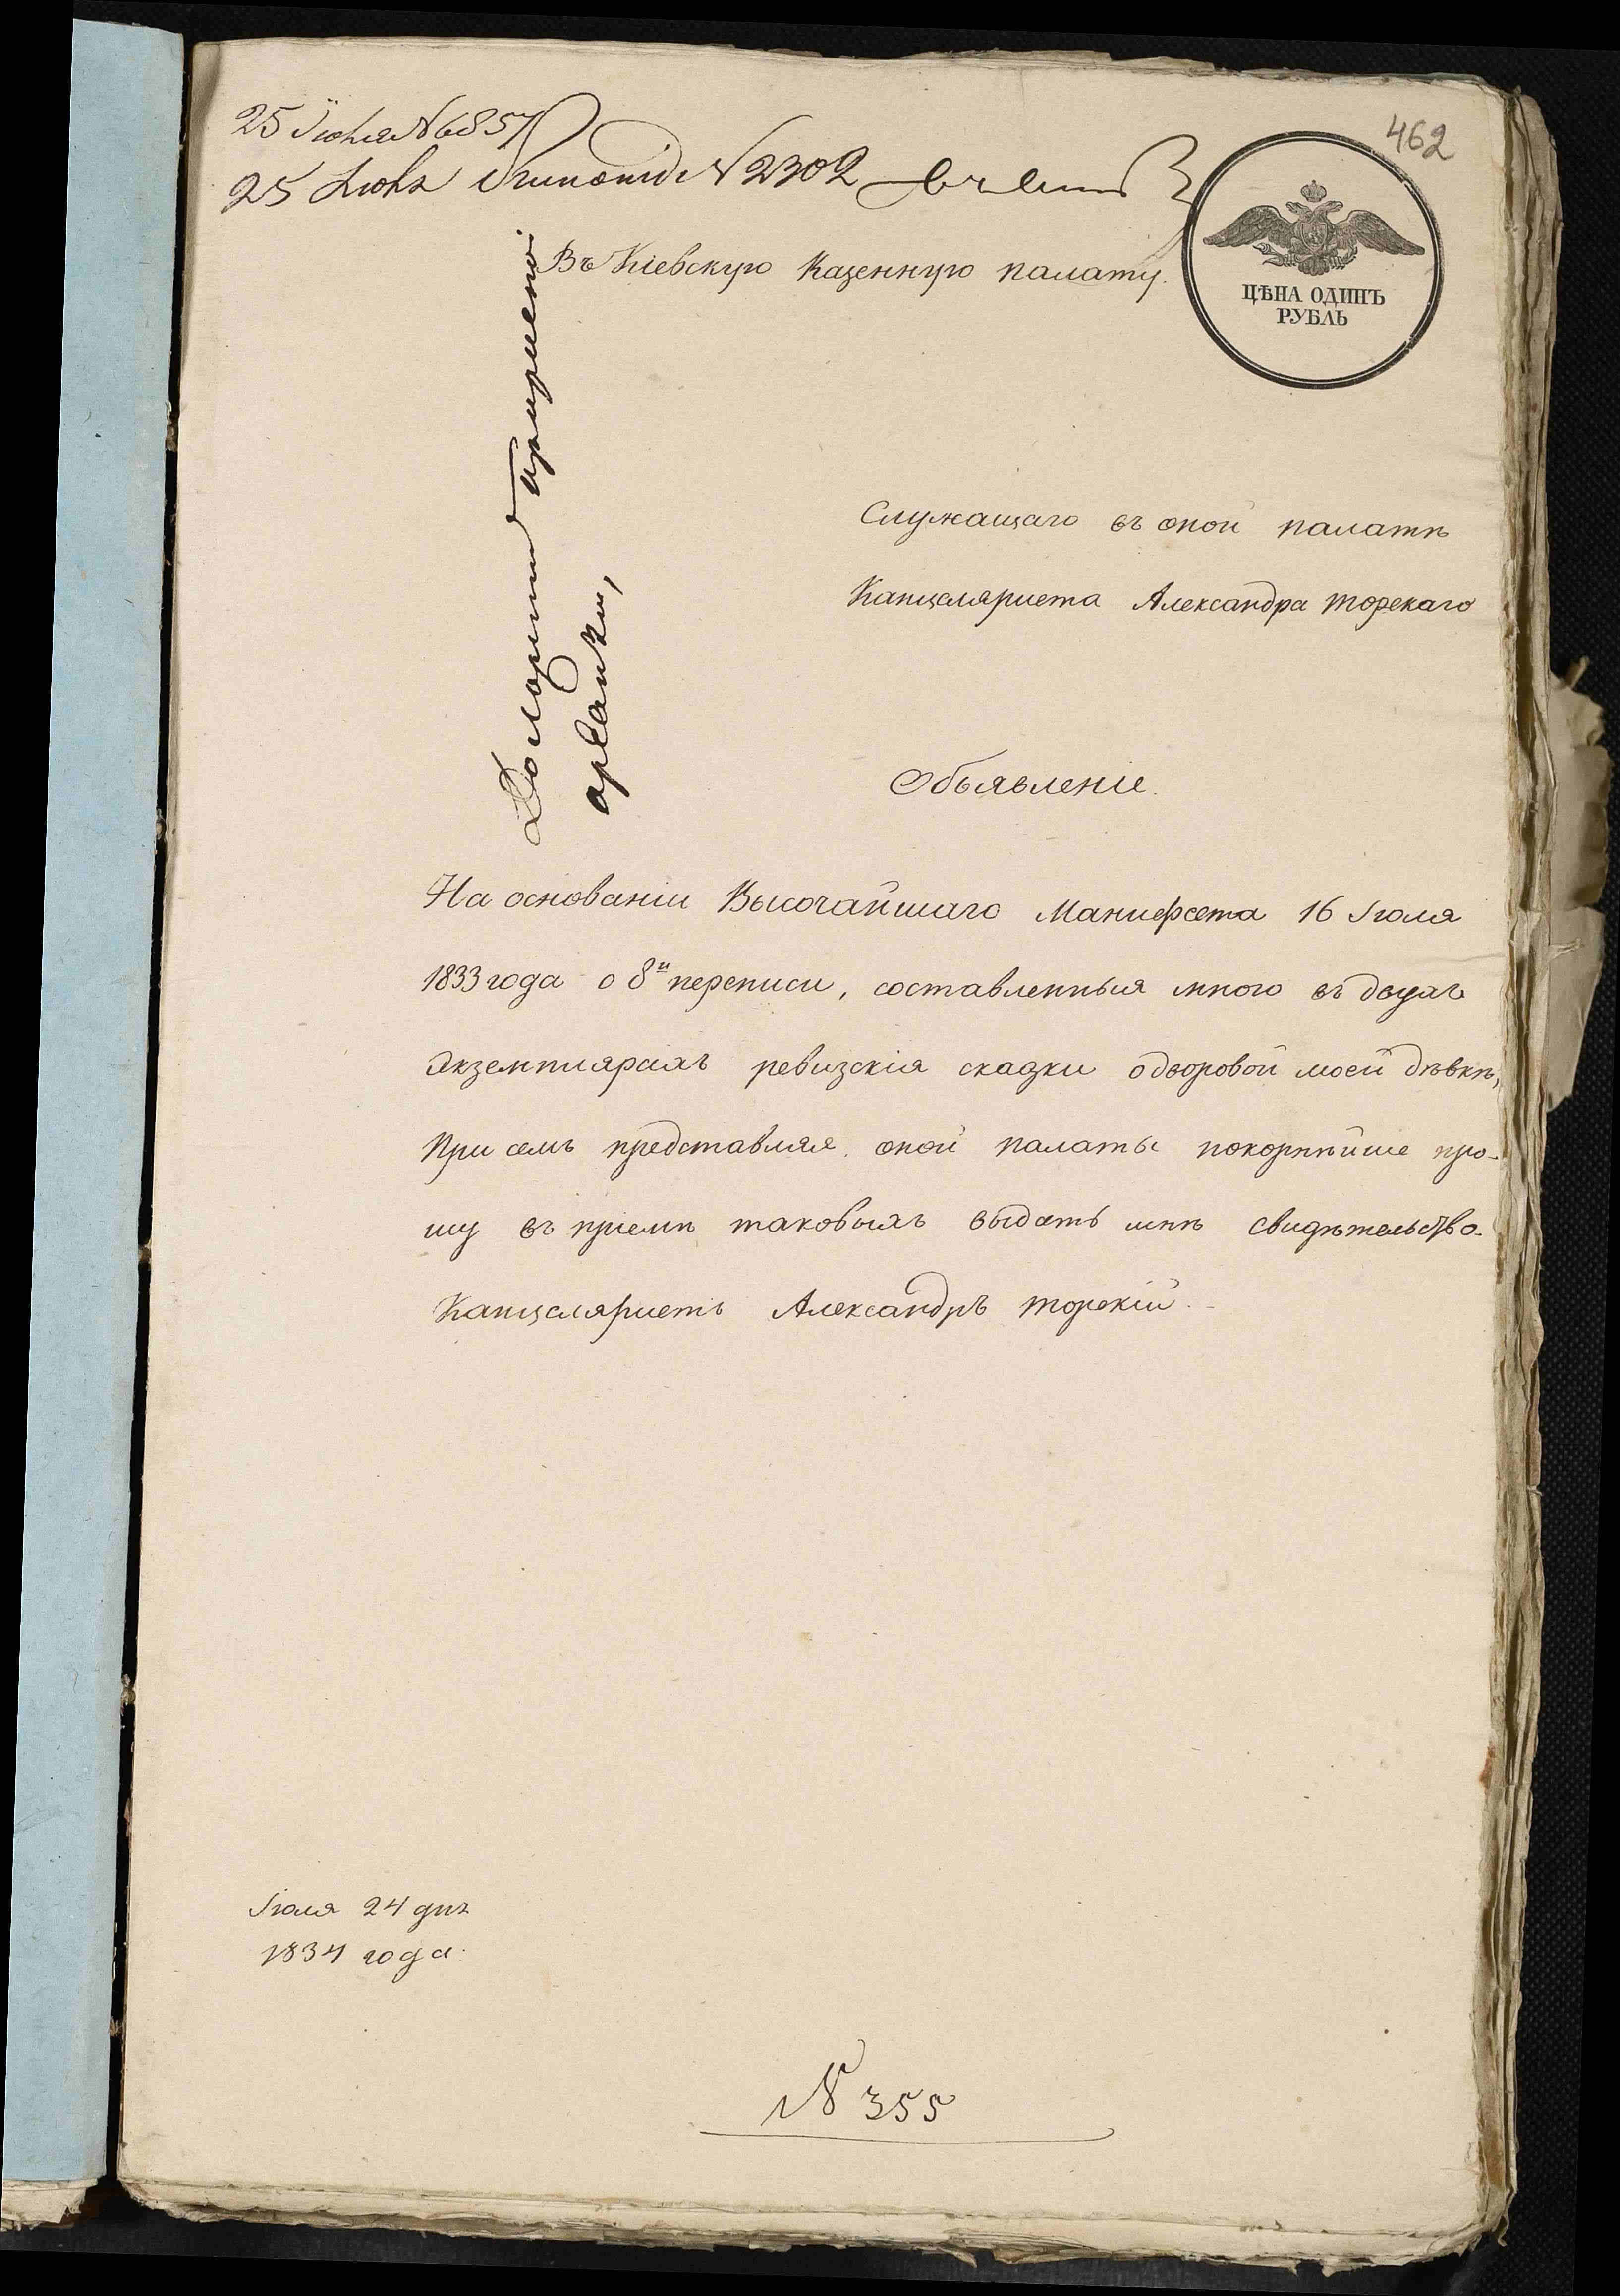 25 Іюля № 6857
462
25 Июля № 2302
Въ Кіевскую Казенную палату.
ЦѢНА ОДИНЪ
РУБЛЬ
Служащаго въ оной палатѣ
Канцеляриста Александра Торскаго
Объявленіе.
На основаніи Высочайшаго Манифеста 16 Іюля
1833 года о 8й переписи, составленныя мною въ двухъ
экземплярахъ ревизскія сказки о дворовой моей дѣвкѣ,
при семъ представляя оной палаты покорнѣйше про-
шу въ пріемѣ таковыхъ выдать мнѣ свидѣтельство.
Канцеляристъ Александръ Торскій.
Іюля 24 дня
1834 года.
№ 355